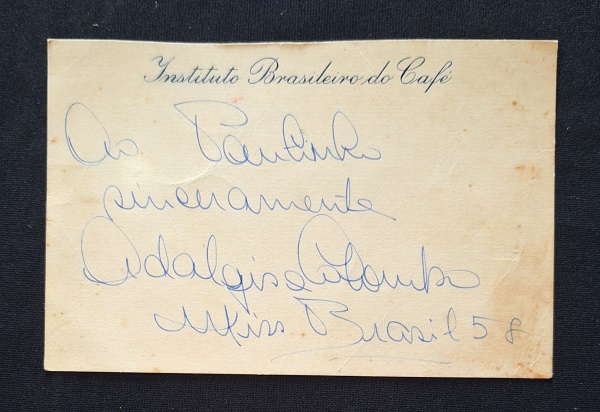 Instituto Brasileiro do Café
Ao Paulinho
sinceramente
Adalgisa Colombo
Miss Brasil 58